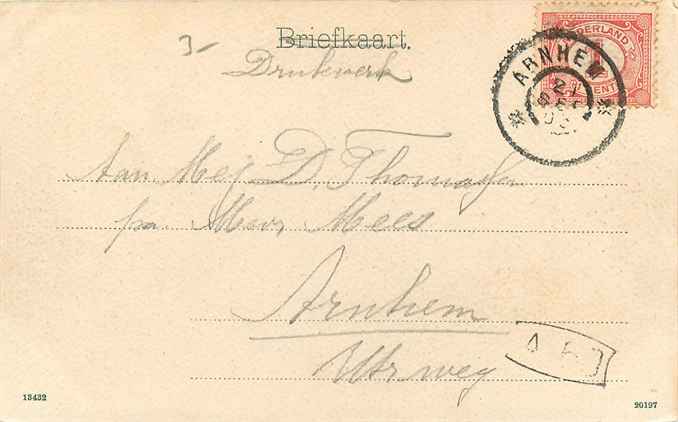 3-
Briefkaart.
Drukwerk
NEDERLAND
1
CENT
ARNHEM
21
SEP
Aan Mej D. Thomassen
p/a Mevr Mees
Arnhem
Utr weg
13432
20197